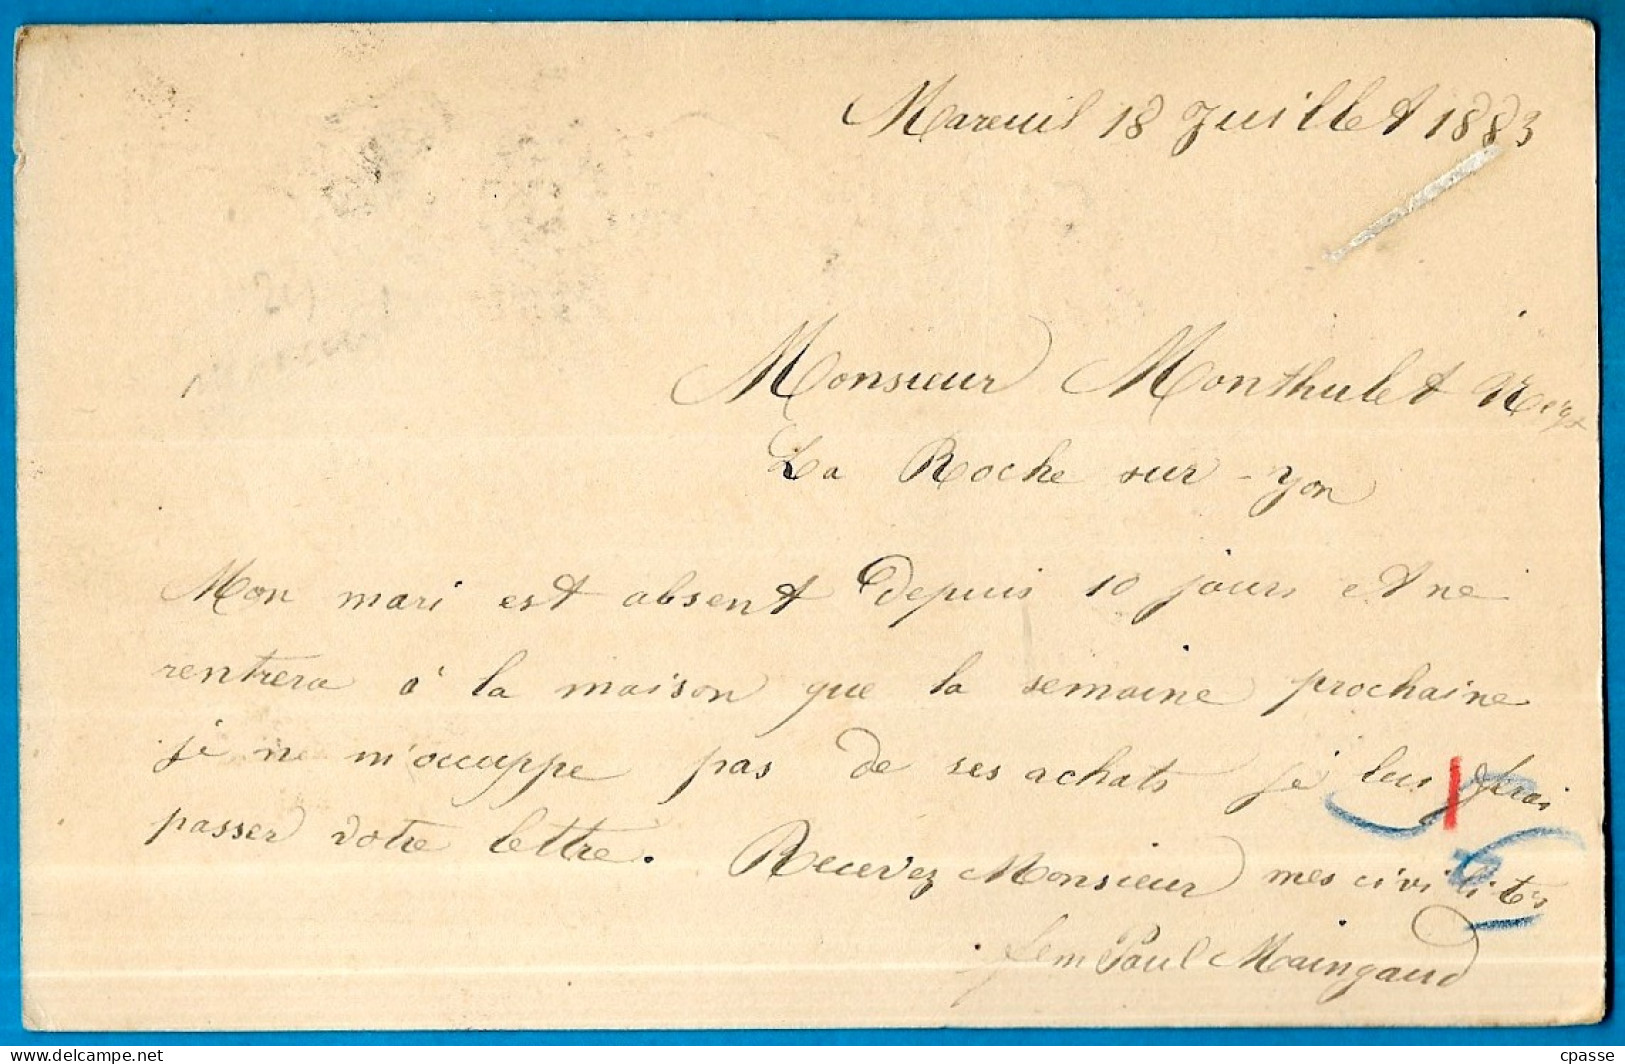 Mareuil 18 Juillet 1883
Monsieur Monthulet Negt
La Roche sur-yon
Mon mari est absent depuis 10 jours et ne
rentrera à la maison que la semaine prochaine
je ne m'occuppe pas de ses achats je lui ferai
passer votre lettre. Recevez Monsieur mes civilités
fem Paul Maingaud
cpasse